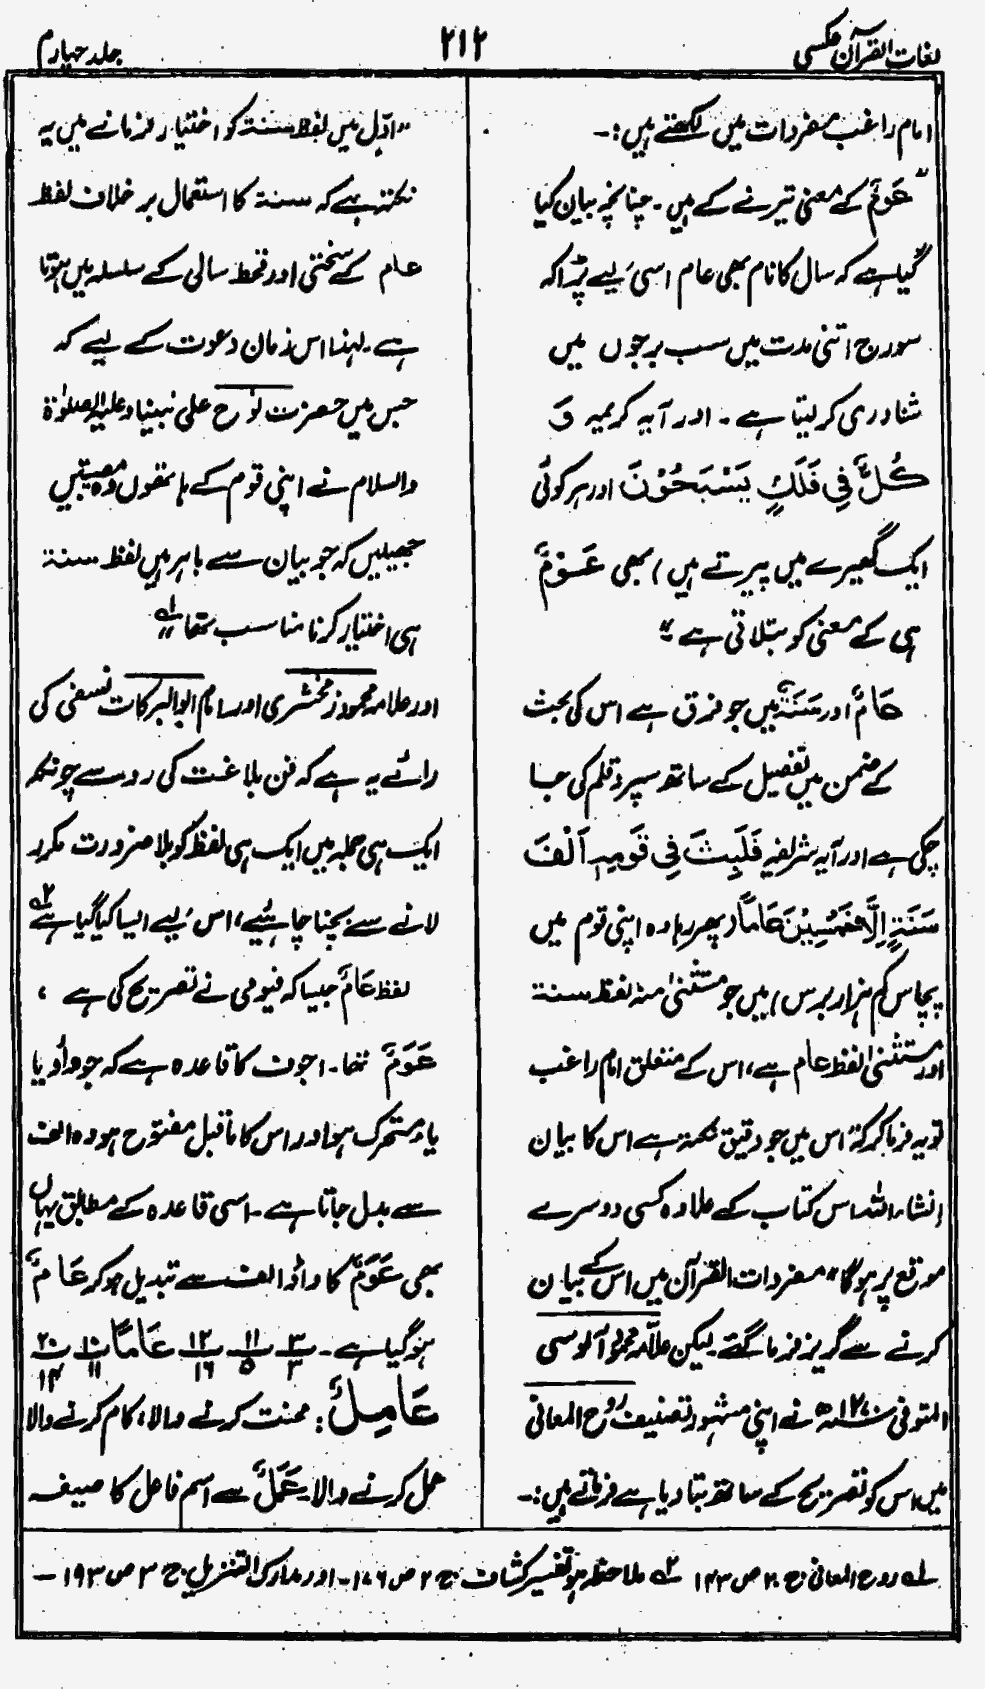 لغات القرآن عکسی
۲۱۲
جلد چہارم
امام راغب مفردات میں لکھتے ہیں:۔
"عَوْمٌ کے معنی تیرنے کے ہیں۔ چنانچہ بیان کیا
گیا ہے کہ سال کا نام بھی عام اسی لیے پڑا کہ
سورج اتنی مدت میں سب برجوں میں
شناوری کر لیتا ہے۔ اور آیہ کریمہ وَ
كُلٌّ فِي فَلَكٍ يَسْبَحُوْنَ اور ہر کوئی
ایک گھیرے میں پیرتے ہیں) بھی عَوْمٌ
ہی کے معنی کو بتلاتی ہے"
عَامٌ اور سَنَةٌ میں جو فرق ہے اس کی بحث
کے ضمن میں تفصیل کے ساتھ سپرد قلم کی جا
چکی ہے اور آیہ شریفہ فَلَبِثَ فِي قَوْمِهِ اَلْفَ
سَنَةٍ اِلَّا خَمْسِيْنَ عَامًا (پھر رہا وہ اپنی قوم میں
پچاس کم ہزار برس) میں جو مستثنیٰ منہ لفظ سنۃ
اور مستثنیٰ لفظ عام ہے، اس کے متعلق امام راغب
تو یہ فرما کر کہ اس میں جو دقیق نکتہ ہے اس کا بیان
انشاء اللہ اس کتاب کے علاوہ کسی دوسرے
موقع پر ہوگا" مفردات القرآن میں اس کے بیان
کرنے سے گریز فرما گئے۔ لیکن علامہ محمود آلوسی
المتوفی ۱۲۷۰ھ نے اپنی مشہور تصنیف روح المعانی
میں اس کو تصریح کے ساتھ بتا دیا ہے فرماتے ہیں:۔
"اوّل میں لفظ سنۃ کو اختیار فرمانے میں یہ
نکتہ ہے کہ سنۃ کا استعمال بر خلاف لفظ
عام کے سختی اور قحط سالی کے سلسلہ میں ہوتا
ہے۔ لہذا اس زمان دعوت کے لیے کہ
جس میں حضرت نوح علی نبینا وعلیہ الصلوٰۃ
والسلام نے اپنی قوم کے ہاتھوں وہ مصیبتیں
جھیلیں کہ جو بیان سے باہر ہیں لفظ سنۃ
ہی اختیار کرنا مناسب تھا" لہ
اور علامہ محمود زمخشری اور امام ابوالبرکات نسفی کی
رائے یہ ہے کہ فن بلاغت کی رو سے چونکہ
ایک ہی جملہ میں ایک ہی لفظ کو بلا ضرورت مکرر
لانے سے بچنا چاہئیے، اس لیے ایسا کیا گیا ہے ۲ہ
لفظ عَامٌ جیسا کہ فیومی نے تصریح کی ہے،
عَوَمٌ تھا۔ اجوف کا قاعدہ ہے کہ جو واؤ یا
یاء متحرک ہو اور اس کا ماقبل مفتوح ہو وہ الف
سے بدل جاتا ہے۔ اسی قاعدہ کے مطابق یہاں
بھی عَوَمٌ کا واؤ الف سے تبدیل ہو کر عَامٌ
ہو گیا ہے۔ ۳/۳ ۱۱/۵ ۱۲/۱۶ عَامًا ۱۰/۱۱ ۲۰/۱۴
عَامِلٌ: محنت کرنے والا، کام کرنے والا
عمل کرنے والا۔ عَمَلٌ سے اسم فاعل کا صیغہ
لہ روح المعانی ج ۲۰ ص ۱۴۳ ۲ہ ملاحظہ ہو تفسیر کشاف ج ۲ ص ۱۷۶۔ اور مدارک التنزیل ج ۳ ص ۱۹۳۔